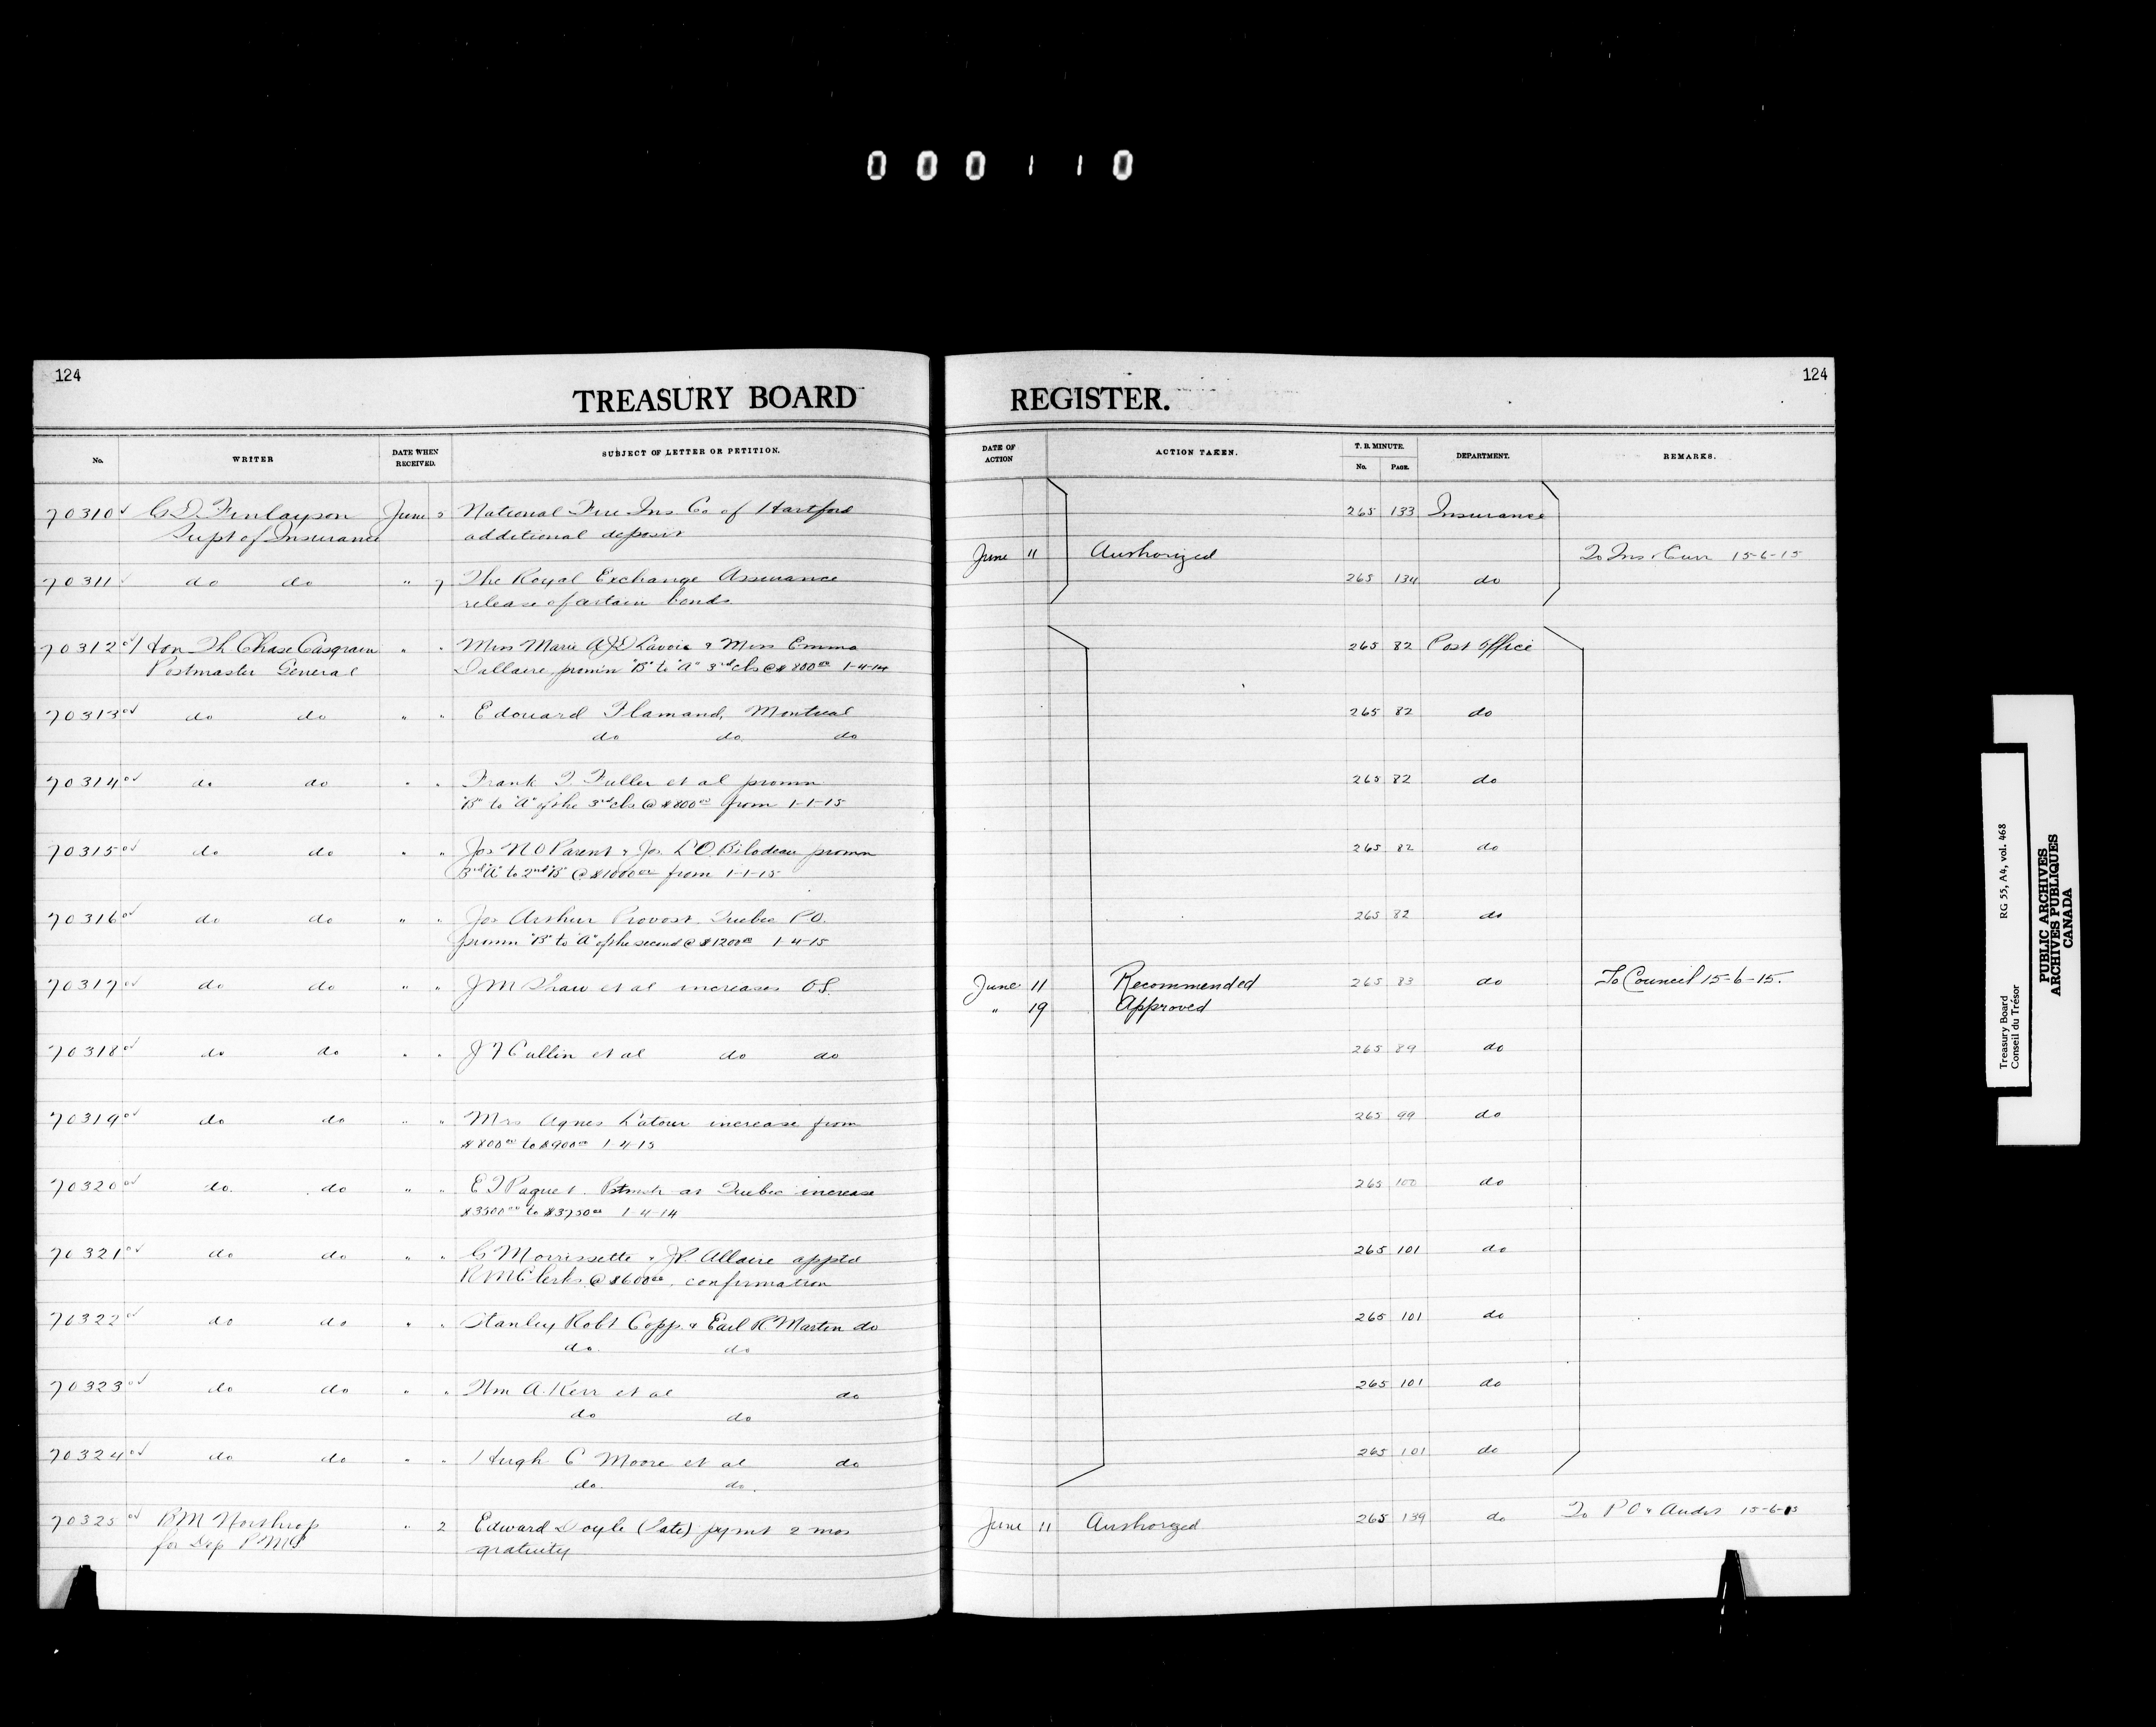 000110
124
TREASURY BOARD
No.
WRITER
DATE WHEN RECEIVED.
SUBJECT OF LETTER OR PETITION.
70310 G D Finlayson June National Fire Ins. Co of Hartford
Supt of Insurance additional deposit
70311 do do " 7 The Royal Exchange Assurance
release of certain bonds
70312 Hon Th Chase Casgrain " " Miss Marie Lavoie & Miss Emma
Postmaster General Dallaire promn "B" to "A" 3rd cls @ $800 00 1-4-14
70313 do do " " Edouard Flamand, Montreal
do do do
70314 do do " " Frank Fuller et al promn
"B" to "A" of the 3rd cls @ $800 00 from 1-1-15
70315 do do " " Jos N O Parent & Jos. L O Bilodeau promn
3rd "A" to 2nd "B" @ $1000 00 from 1-1-15
70316 do do " " Jos Arthur Provost Quebec P.O.
promn "B" to "A" of the second @ $1200 00 1-4-15
70317 do do " " J M Shaw et al increases O.S.
70318 do do " " Cullin et al do do
70319 do do " " Mrs Agnes Latour increase from
$800 00 to $900 00 1-4-15
70320 do do " " Paquet Pstmstr at Quebec increase
$3500 00 to $3750 00 1-4-14
70321 do do " " G Morrissette & J.P. Allaire apptd
R M Clerks @ $600 00, confirmation
70322 do do " " Stanley Robt Copp & Earl R. Martin do
do do
70323 do do " " Wm A. Kerr et al do
do do
70324 do do " " Hugh C Moore et al do
do. do.
70325 Northrop " 2 Edward Doyle (late) pymt 2 mos
for Dep P M G gratuity
124
REGISTER.
DATE OF ACTION
ACTION TAKEN.
T. B. MINUTE.
No. PAGE.
DEPARTMENT.
REMARKS.
265 133 Insurance
June 11 Authorized To Ins & Curr 15-6-15
265 134 do
265 82 Post Office
265 82 do
265 82 do
265 82 do
265 82 do
June 11 Recommended 265 83 do To Council 15-6-15.
" 19 Approved
265 89 do
265 99 do
265 100 do
265 101 do
265 101 do
265 101 do
265 101 do
June 11 Authorized 265 139 do To P O & Audr 15-6-15
Treasury Board RG 55, A4, vol. 468
Conseil du Trésor
PUBLIC ARCHIVES
ARCHIVES PUBLIQUES
CANADA